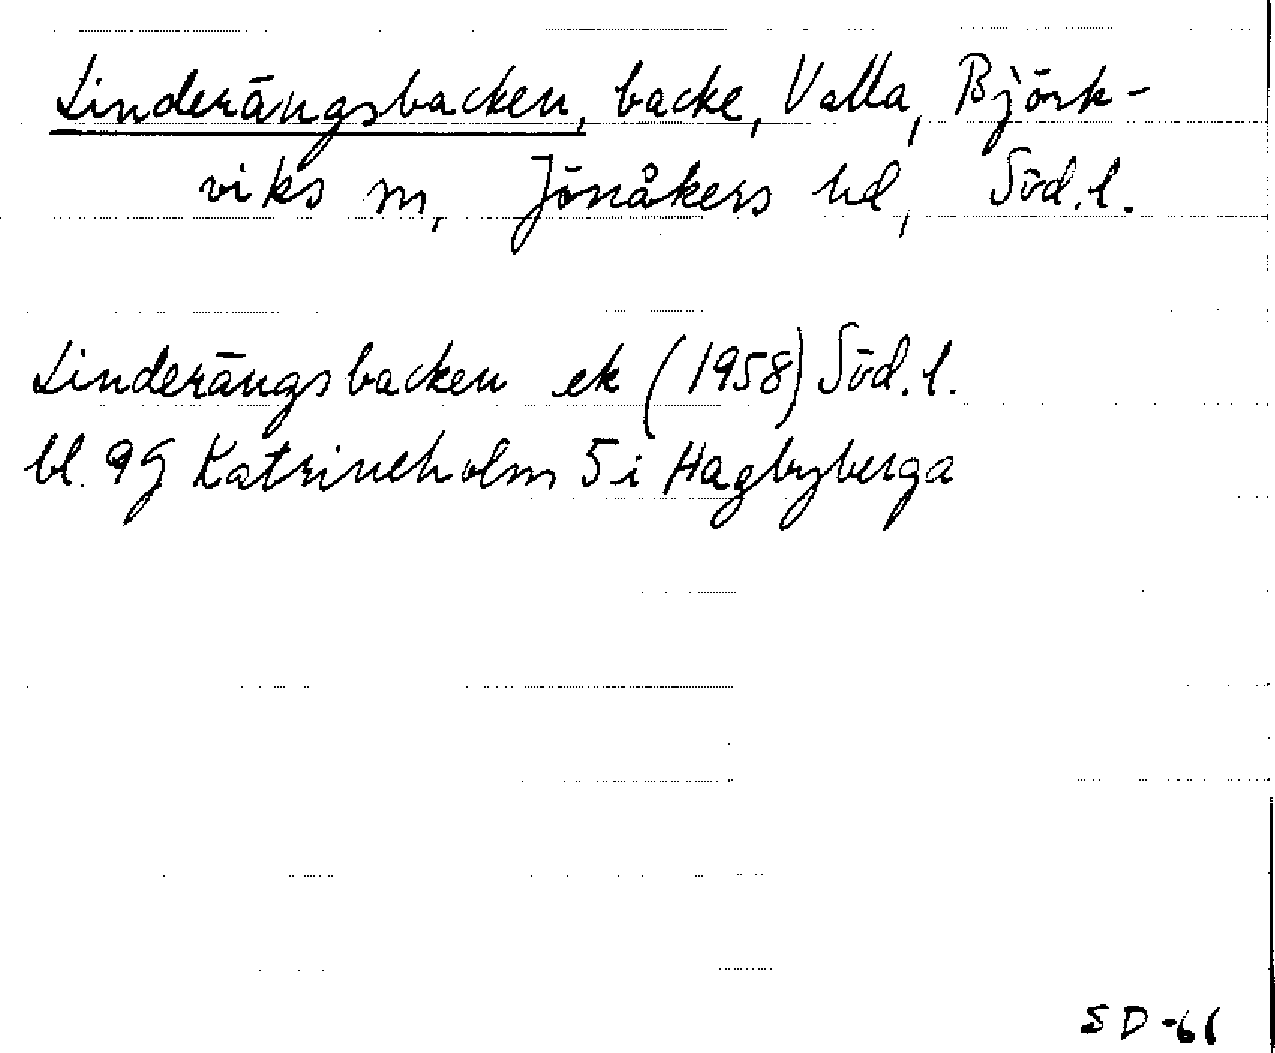 Linderängsbacken, backe, Valla, Björk-
viks sn, Jönåkers hd, Söd. l.
Linderängsbacken ek (1958) Söd. l.
bl. 9G Katrineholm 5i Hagbyberga
SD-61